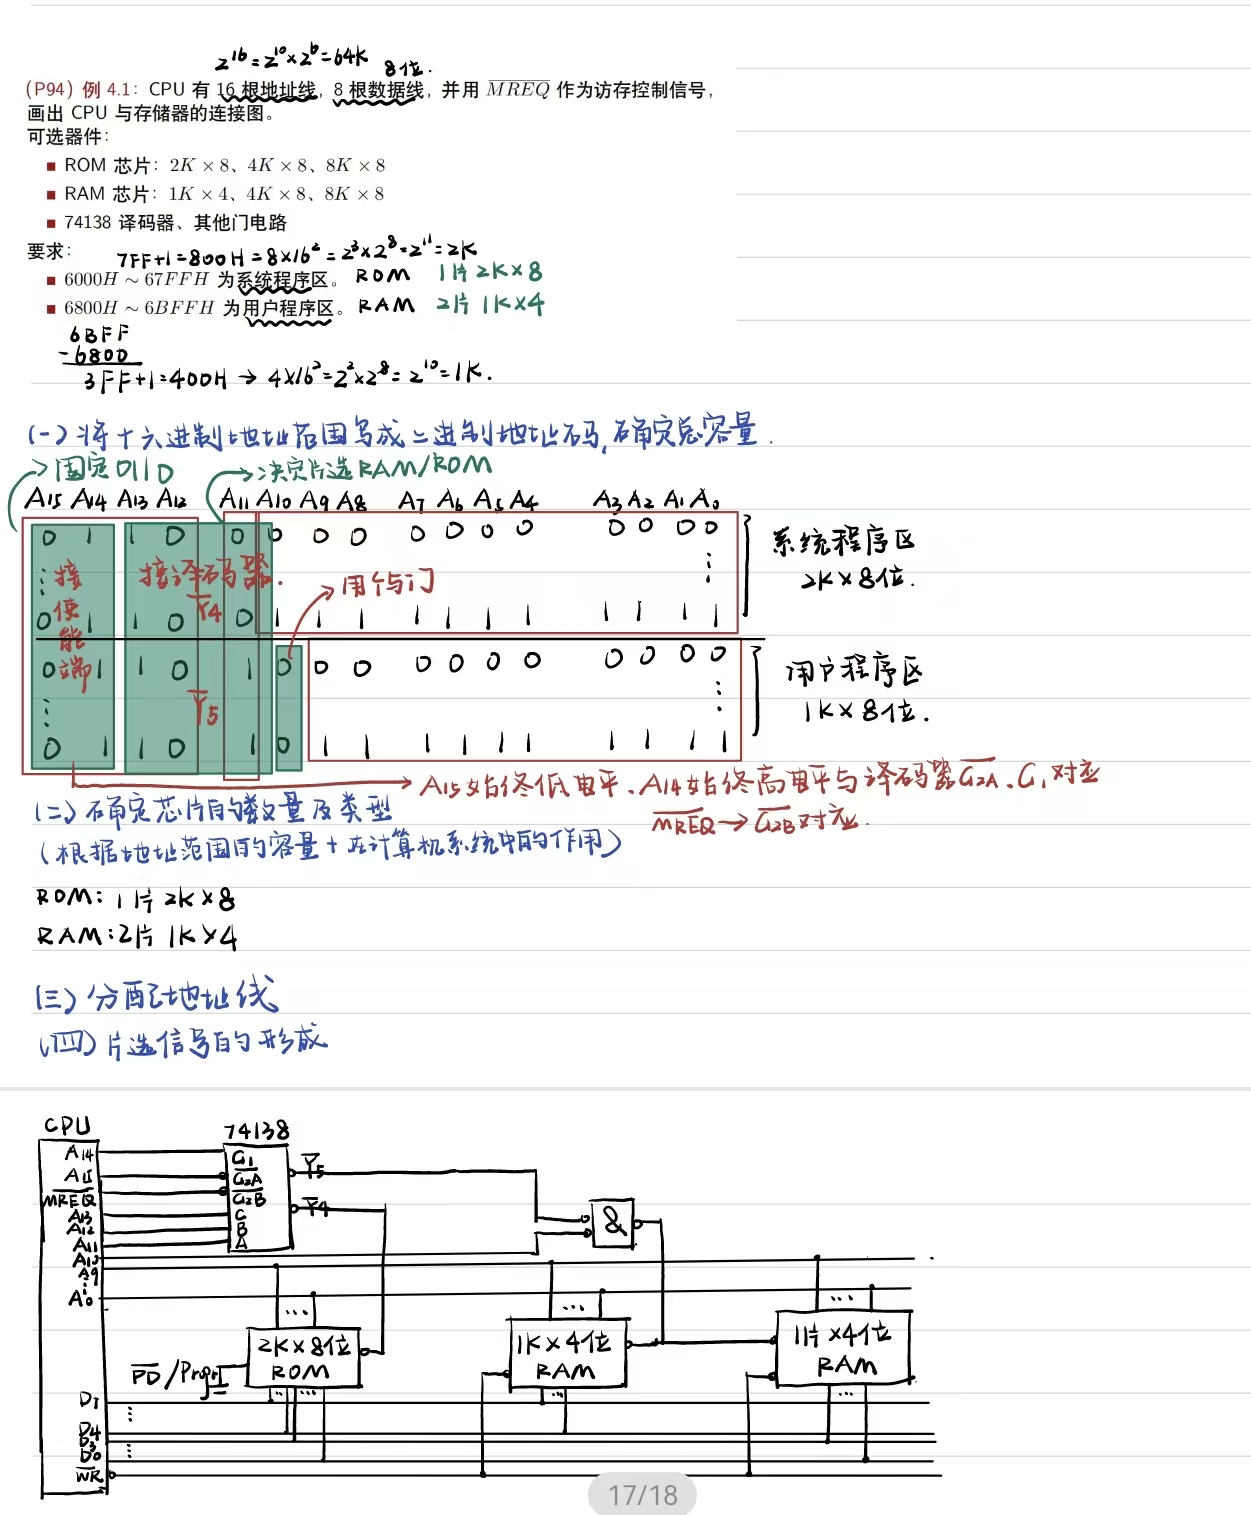 2¹⁶=2¹⁰×2⁶=64K 8位.
(P94) 例 4.1: CPU 有 16 根地址线, 8 根数据线, 并用 M̅R̅E̅Q̅ 作为访存控制信号,
画出 CPU 与存储器的连接图。
可选器件:
■ ROM 芯片: 2K × 8、4K × 8、8K × 8
■ RAM 芯片: 1K × 4、4K × 8、8K × 8
■ 74138 译码器、其他门电路
要求:
7FF+1=800H=8×16²=2³×2⁸=2¹¹=2K
■ 6000H ~ 67FFH 为系统程序区。 ROM 1片 2K×8
■ 6800H ~ 6BFFH 为用户程序区。 RAM 2片 1K×4
6BFF
-6800
3FF+1=400H → 4×16²=2²×2⁸=2¹⁰=1K.
(一)将十六进制地址范围写成二进制地址码,确定总容量.
→固定0110 →决定片选RAM/ROM
A15 A14 A13 A12 A11 A10 A9 A8 A7 A6 A5 A4 A3 A2 A1 A0
0 1 1 0 0 0 0 0 0 0 0 0 0 0 0 0 系统程序区
接使能端 接译码器. →用个与门 2K×8位.
0 1 1 0 Y̅4 0 1 1 1 1 1 1 1 1 1 1 1
0 1 1 0 1 0 0 0 0 0 0 0 0 0 0 0 用户程序区
Y̅5 1K×8位.
0 1 1 0 1 0 1 1 1 1 1 1 1 1 1 1
→ A15始终低电平、A14始终高电平与译码器G̅2A̅、G1对应
M̅R̅E̅Q̅→G̅2B̅对应.
(二)确定芯片的数量及类型
(根据地址范围的容量+在计算机系统中的作用)
ROM: 1片 2K×8
RAM: 2片 1K×4
(三)分配地址线
(四)片选信号的形成
CPU 74138
A14 G1 Y̅5
A15 G̅2A̅
M̅R̅E̅Q̅ G̅2B̅ Y̅4
A13 C &
A12 B
A11 A
A10
A9
⋮
A0
... ... ...
2K×8位 ROM
1K×4位 RAM
1片×4位 RAM
P̅D̅/Progr
... ... ... ...
D7
⋮
D4
D3
⋮
D0
W̅R̅
17/18